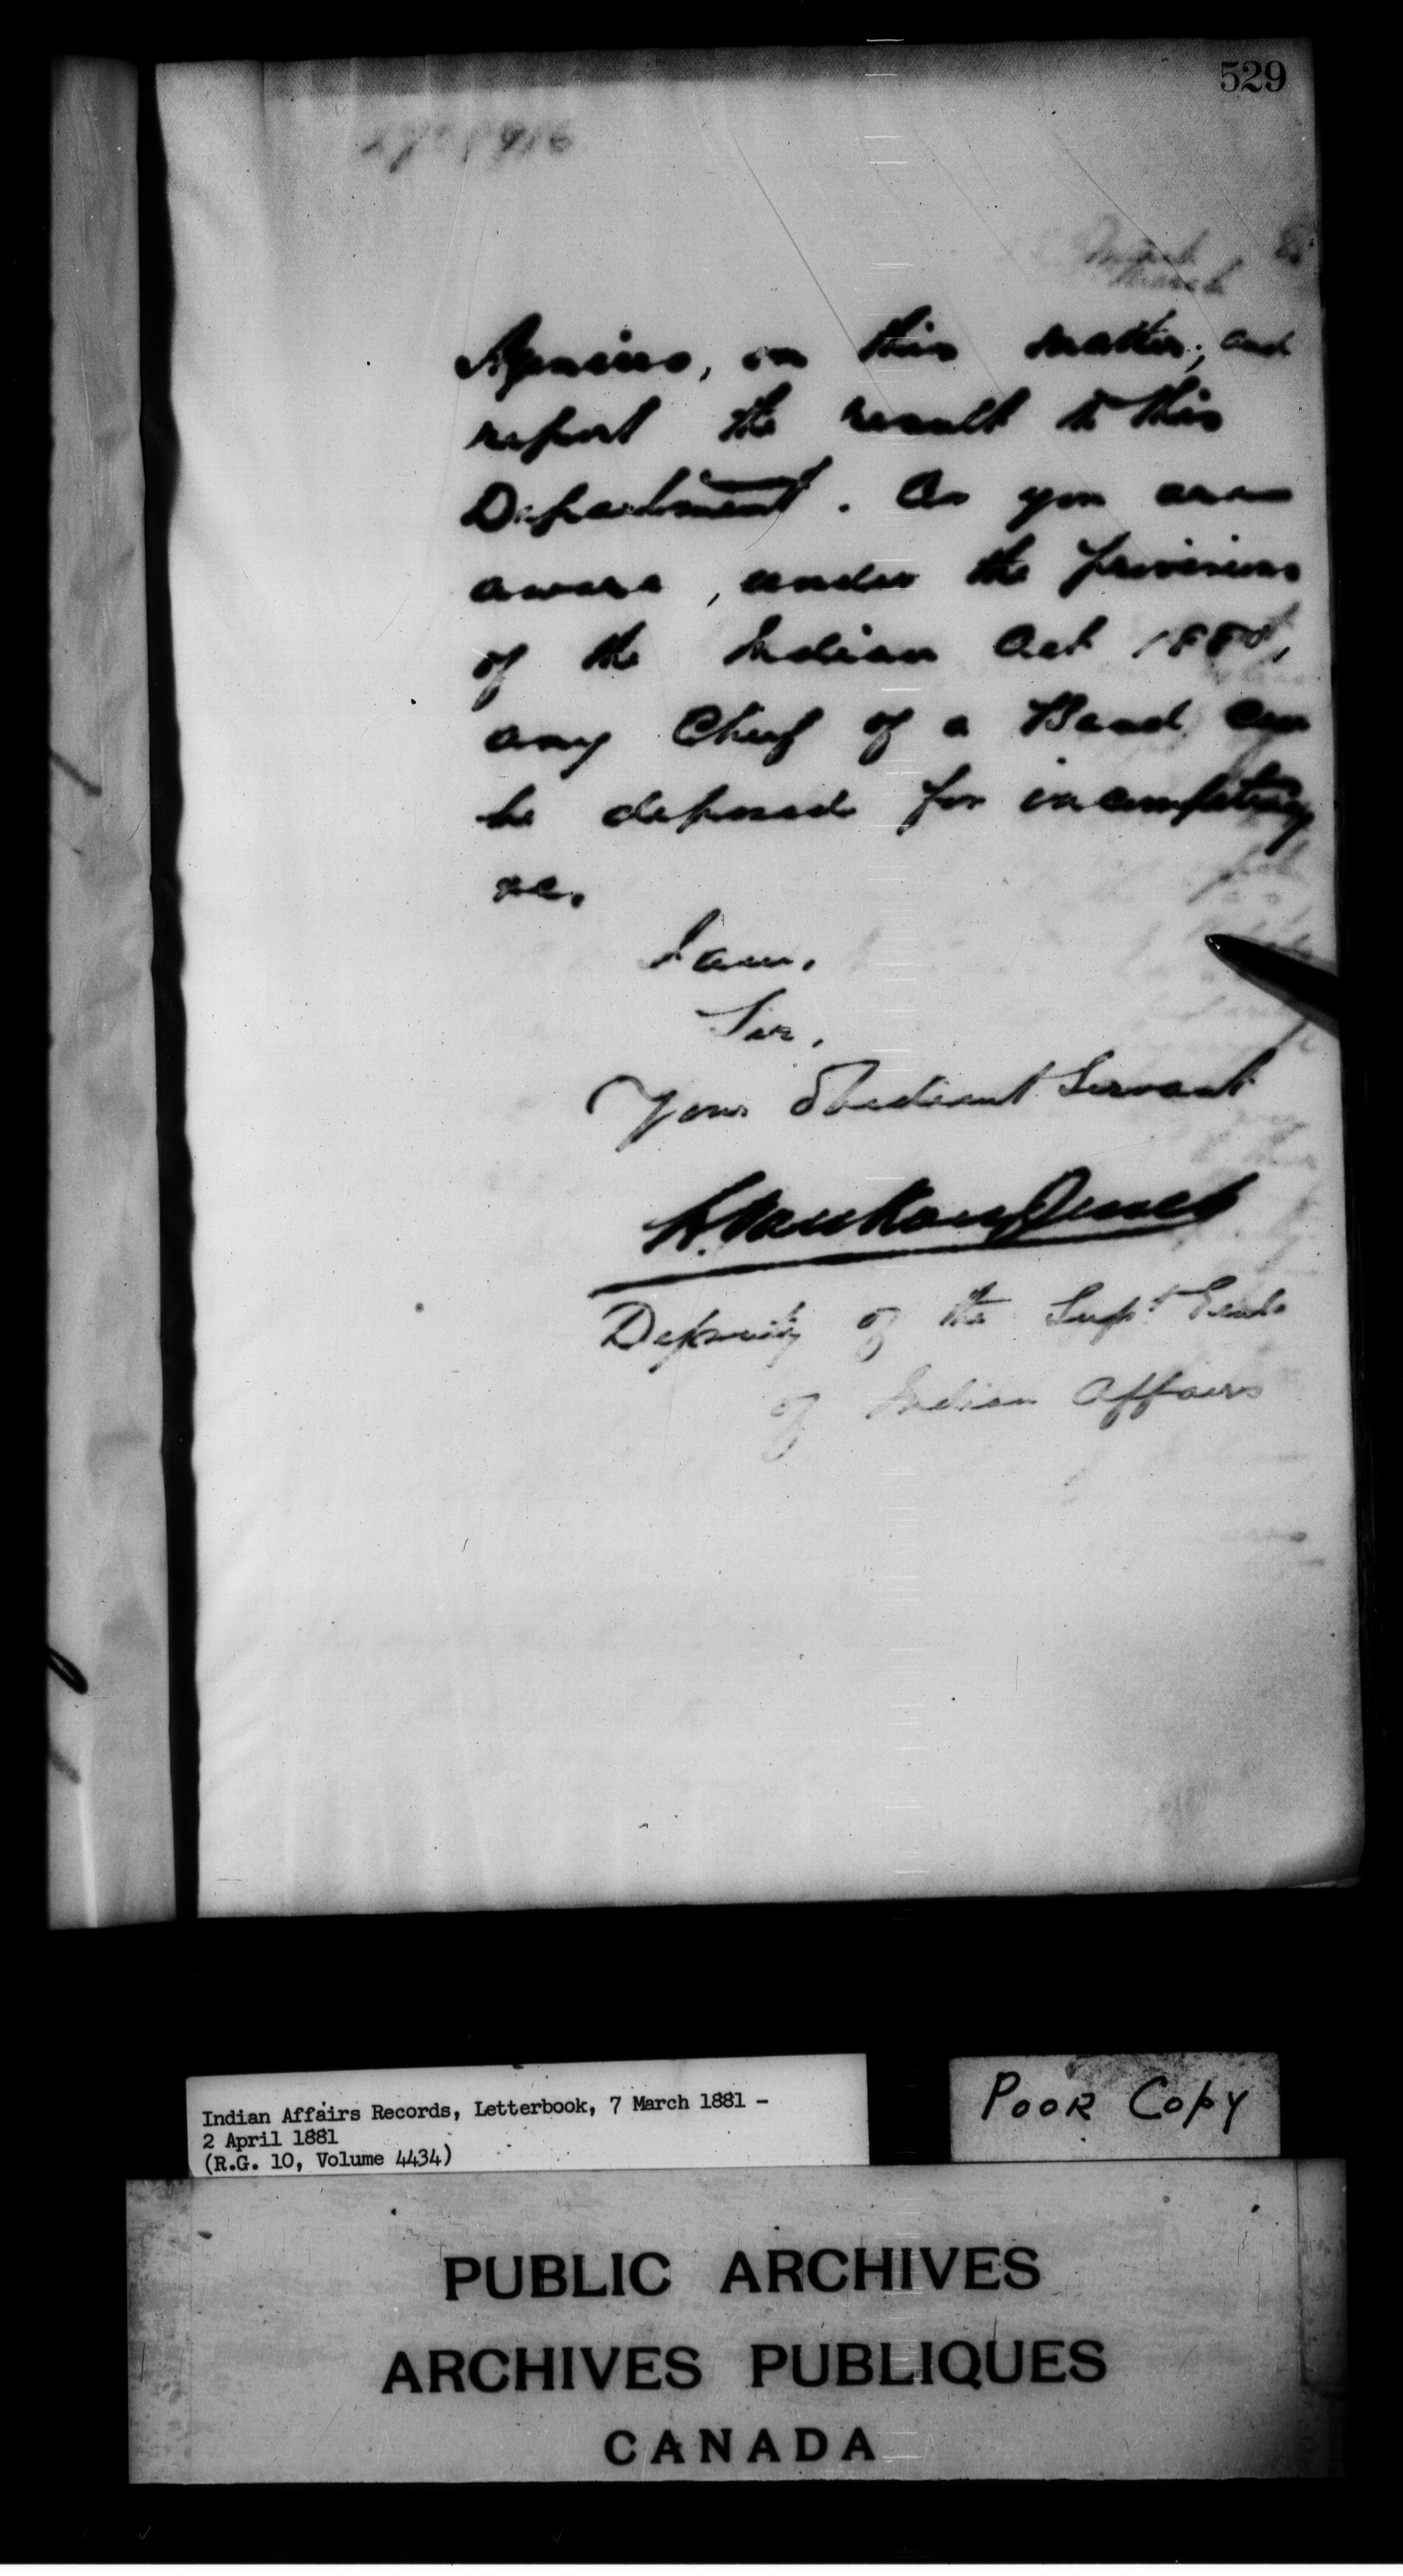 529
March
in this matter, and
report the result to this
Department. As you are
aware, under the provisions
of the Indian Act 1880,
any Chief of a Band can
be deposed for incompetency
&c.
I am,
Sir,
Your Obedient Servant
L. Vankoughnet
Deputy of the Supt. Genl.
of Indian Affairs
Indian Affairs Records, Letterbook, 7 March 1881 -
2 April 1881
(R.G. 10, Volume 4434)
POOR COPY
PUBLIC ARCHIVES
ARCHIVES PUBLIQUES
CANADA